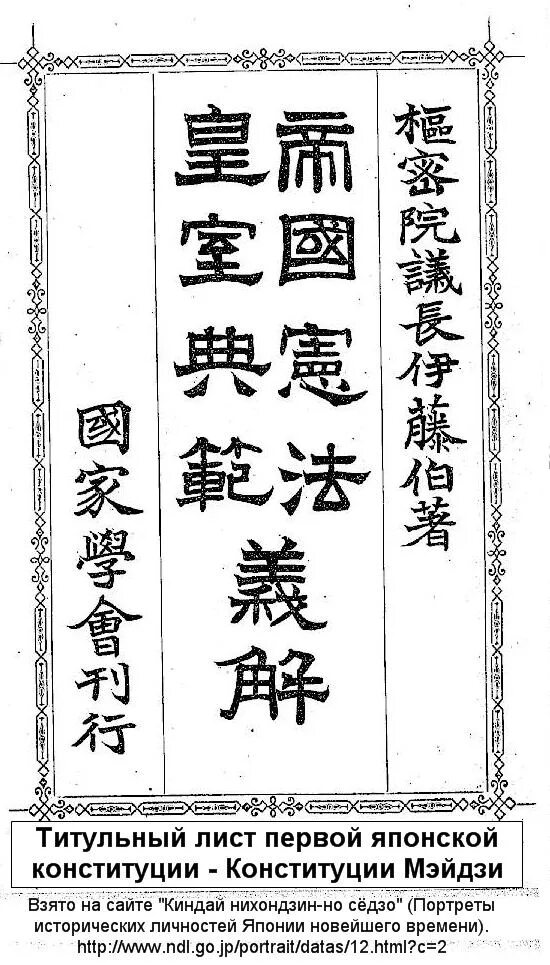 樞密院議長伊藤伯著
帝國憲法
皇室典範
義解
國家學會刊行
Титульный лист первой японской
конституции - Конституции Мэйдзи
Взято на сайте "Киндай нихондзин-но сёдзо" (Портреты
исторических личностей Японии новейшего времени).
http://www.ndl.go.jp/portrait/datas/12.html?c=2